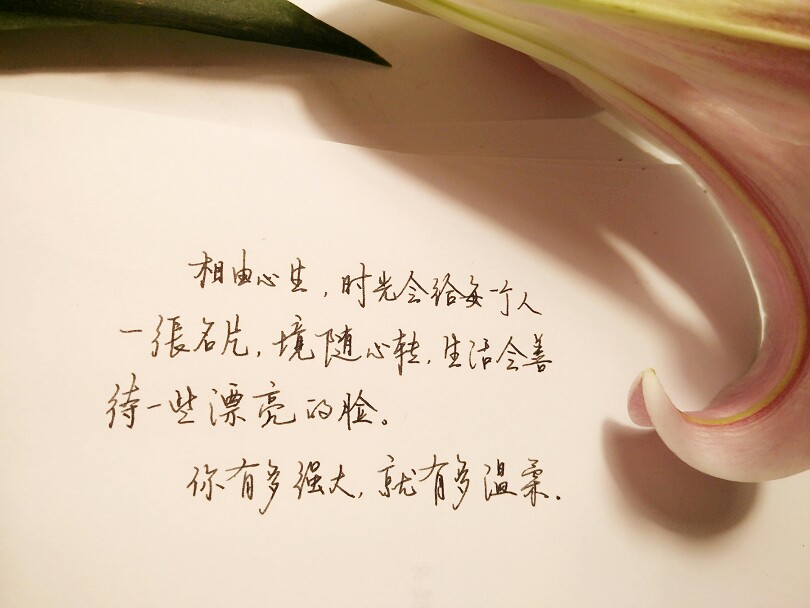 相由心生，时光会给每一个人
一張名片，境随心转，生活会善
待一些漂亮的脸。
你有多强大，就有多温柔．